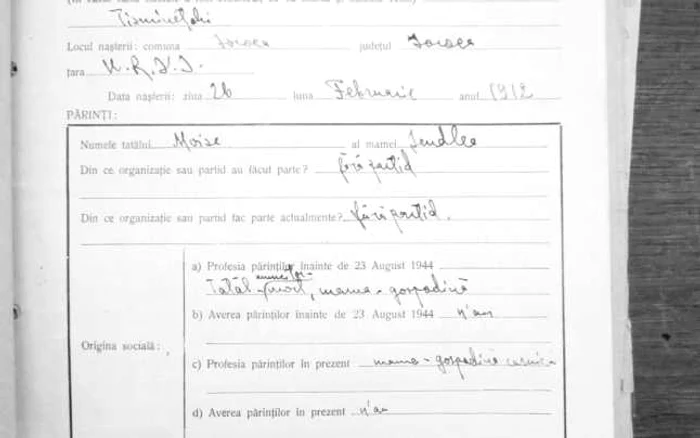 Tismineţchi
Locul naşterii: comuna Soroca judeţul Soroca
ţara U.R.S.S.
Data naşterii: ziua 26 luna Februarie anul 1912
PĂRINŢI:
Numele tatălui Moise al mamei Jendlea
Din ce organizaţie sau partid au făcut parte? fără partid
Din ce organizaţie sau partid fac parte actualmente? fără partid.
a) Profesia părinţilor înainte de 23 August 1944
Tatăl mort, mama - gospodină
b) Averea părinţilor înainte de 23 August 1944 n'au
Origina socială:
c) Profesia părinţilor în prezent mama - gospodină casnică
d) Averea părinţilor în prezent n'au